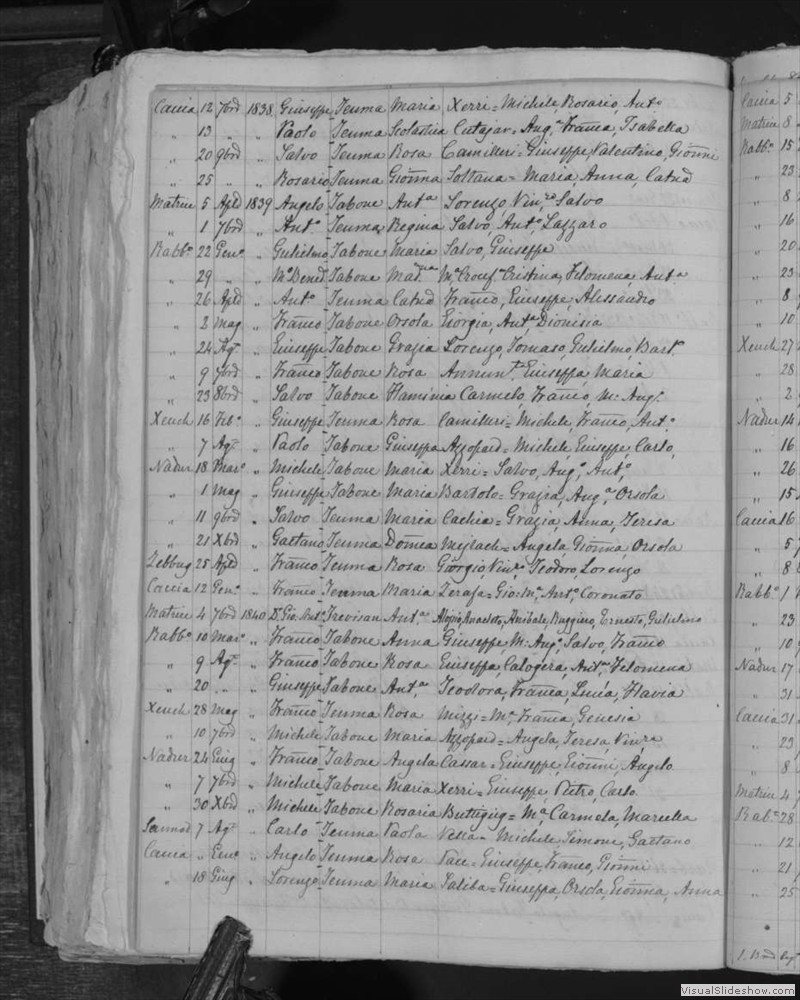 Caccia 12 7bre 1838 Giuseppe Teuma Maria Xerri = Michele Rosario, Anto
" 13 " " Paolo Teuma Scolastica Cutajar = Aug.a Franca, Isabella
" 20 9bre " Salvo Teuma Rosa Camilleri = Giuseppe, Valentino, Gionni
" 25 " " Rosario Teuma Gionna Soltana = Maria, Anna, Catna
Matrice 5 Aple 1839 Angelo Tabone Anta Lorenzo, Salvo
" 1 7bre " Anto Teuma Regina Salvo, Anto, Lazzaro
Rabbo 22 Geno " Gulielmo Tabone Maria Salvo, Giuseppe
" 29 " " Ma Bened Tabone Madna Ma Crocifa Cristina, Filomena, Anta
" 26 Aple " Anto Teuma Catna Franco, Giuseppe, Alessandro
" 2 Mag " Franco Tabone Orsola Giorgia, Anta, Dionisia
" 24 Ago " Giuseppe Tabone Grazia Lorenzo, Tomaso, Gulielmo, Bart.
" 9 7bre " Franco Tabone Rosa Annunta, Giuseppa, Maria
" 23 8bre " Salvo Tabone Flaminia Carmelo, Franco, M. Ang.
Xeuch 16 Febo " Giuseppe Teuma Rosa Camilleri = Michele, Franco, Anto
" 7 Ago " Paolo Tabone Giuseppa Azzopard = Michele, Giuseppe, Carlo,
Nadur 18 Maro " Michele Tabone Maria Xerri = Salvo, Augo, Anto,
" 1 Mag " Giuseppe Tabone Maria Bartolo = Grazia, Anga, Orsola
" 11 9bre " Salvo Teuma Maria Cachia = Grazia, Anna, Teresa
" 21 Xbre " Gaetano Teuma Domca Mejlach = Angela, Gionna, Orsola
Zebbug 25 Aple " Franco Teuma Rosa Giorgio, Vinzo, Teodoro, Lorenzo
Caccia 12 Geno " Franco Teuma Maria Zerafa = Gio: Ma, Anto, Coronato
Matrice 4 7bre 1840 Dr Gio: Anto Trevisan Anta Aloisio, Anacleto, Annibale, Ruggiero, Ernesto, Gulielmo
Rabbo 10 Maro " Franco Tabone Anna Giuseppe M. Ango, Salvo, Franco
" 9 Ago " Franco Tabone Rosa Giuseppa, Calogera, Anta, Filomena
" 20 " " Giuseppe Tabone Anta Teodora, Franca, Lucia, Flavia
Xeuch 28 Mag " Franco Teuma Rosa Mizzi = Ma Franca, Genesia
" 10 7bre " Michele Tabone Maria Azzopard = Angela, Teresa, Vinza
Nadur 24 Giug " Franco Tabone Angela Cassar = Giuseppe, Gionni, Angelo
" 7 7bre " Michele Tabone Maria Xerri = Giuseppe, Pietro, Carlo
" 30 Xbre " Michele Tabone Rosaria Buttigieg = Ma Carmela, Marcella
Sannat 7 Ago " Carlo Teuma Paola Vella = Michele, Simone, Gaetano
Caccia " Geno " Angelo Teuma Rosa Pace = Giuseppe, Franco, Gionni
" 18 Giug " Lorenzo Teuma Maria Saliba = Giuseppa, Orsola, Gionna, Anna
Caccia 5
Matrice 8
Rabbo 15
" 23
" 8
" 16
" 20
" 23
" 8
" 10
Xeuch 27
" 28
" 2
Nadur 14
" 16
" 26
" 15
Caccia 16
" 5
" 8
Rabbo 1
" 23
" 10
Nadur 17
" 31
Caccia 31
" 23
" 8
Matrice 4
Rabo 28
" 12
" 21
" 25
VisualSlideshow.com